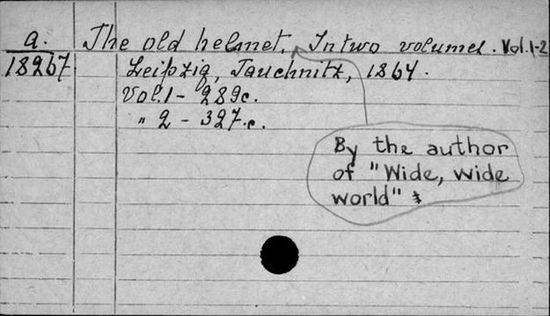 a. The old helmet. In two volumes. Vol. 1-2
18267 Leipzig, Tauchnitz, 1864.
Vol. 1 - 289c.
" 2 - 327.c.
By the author
of "Wide, wide
world"